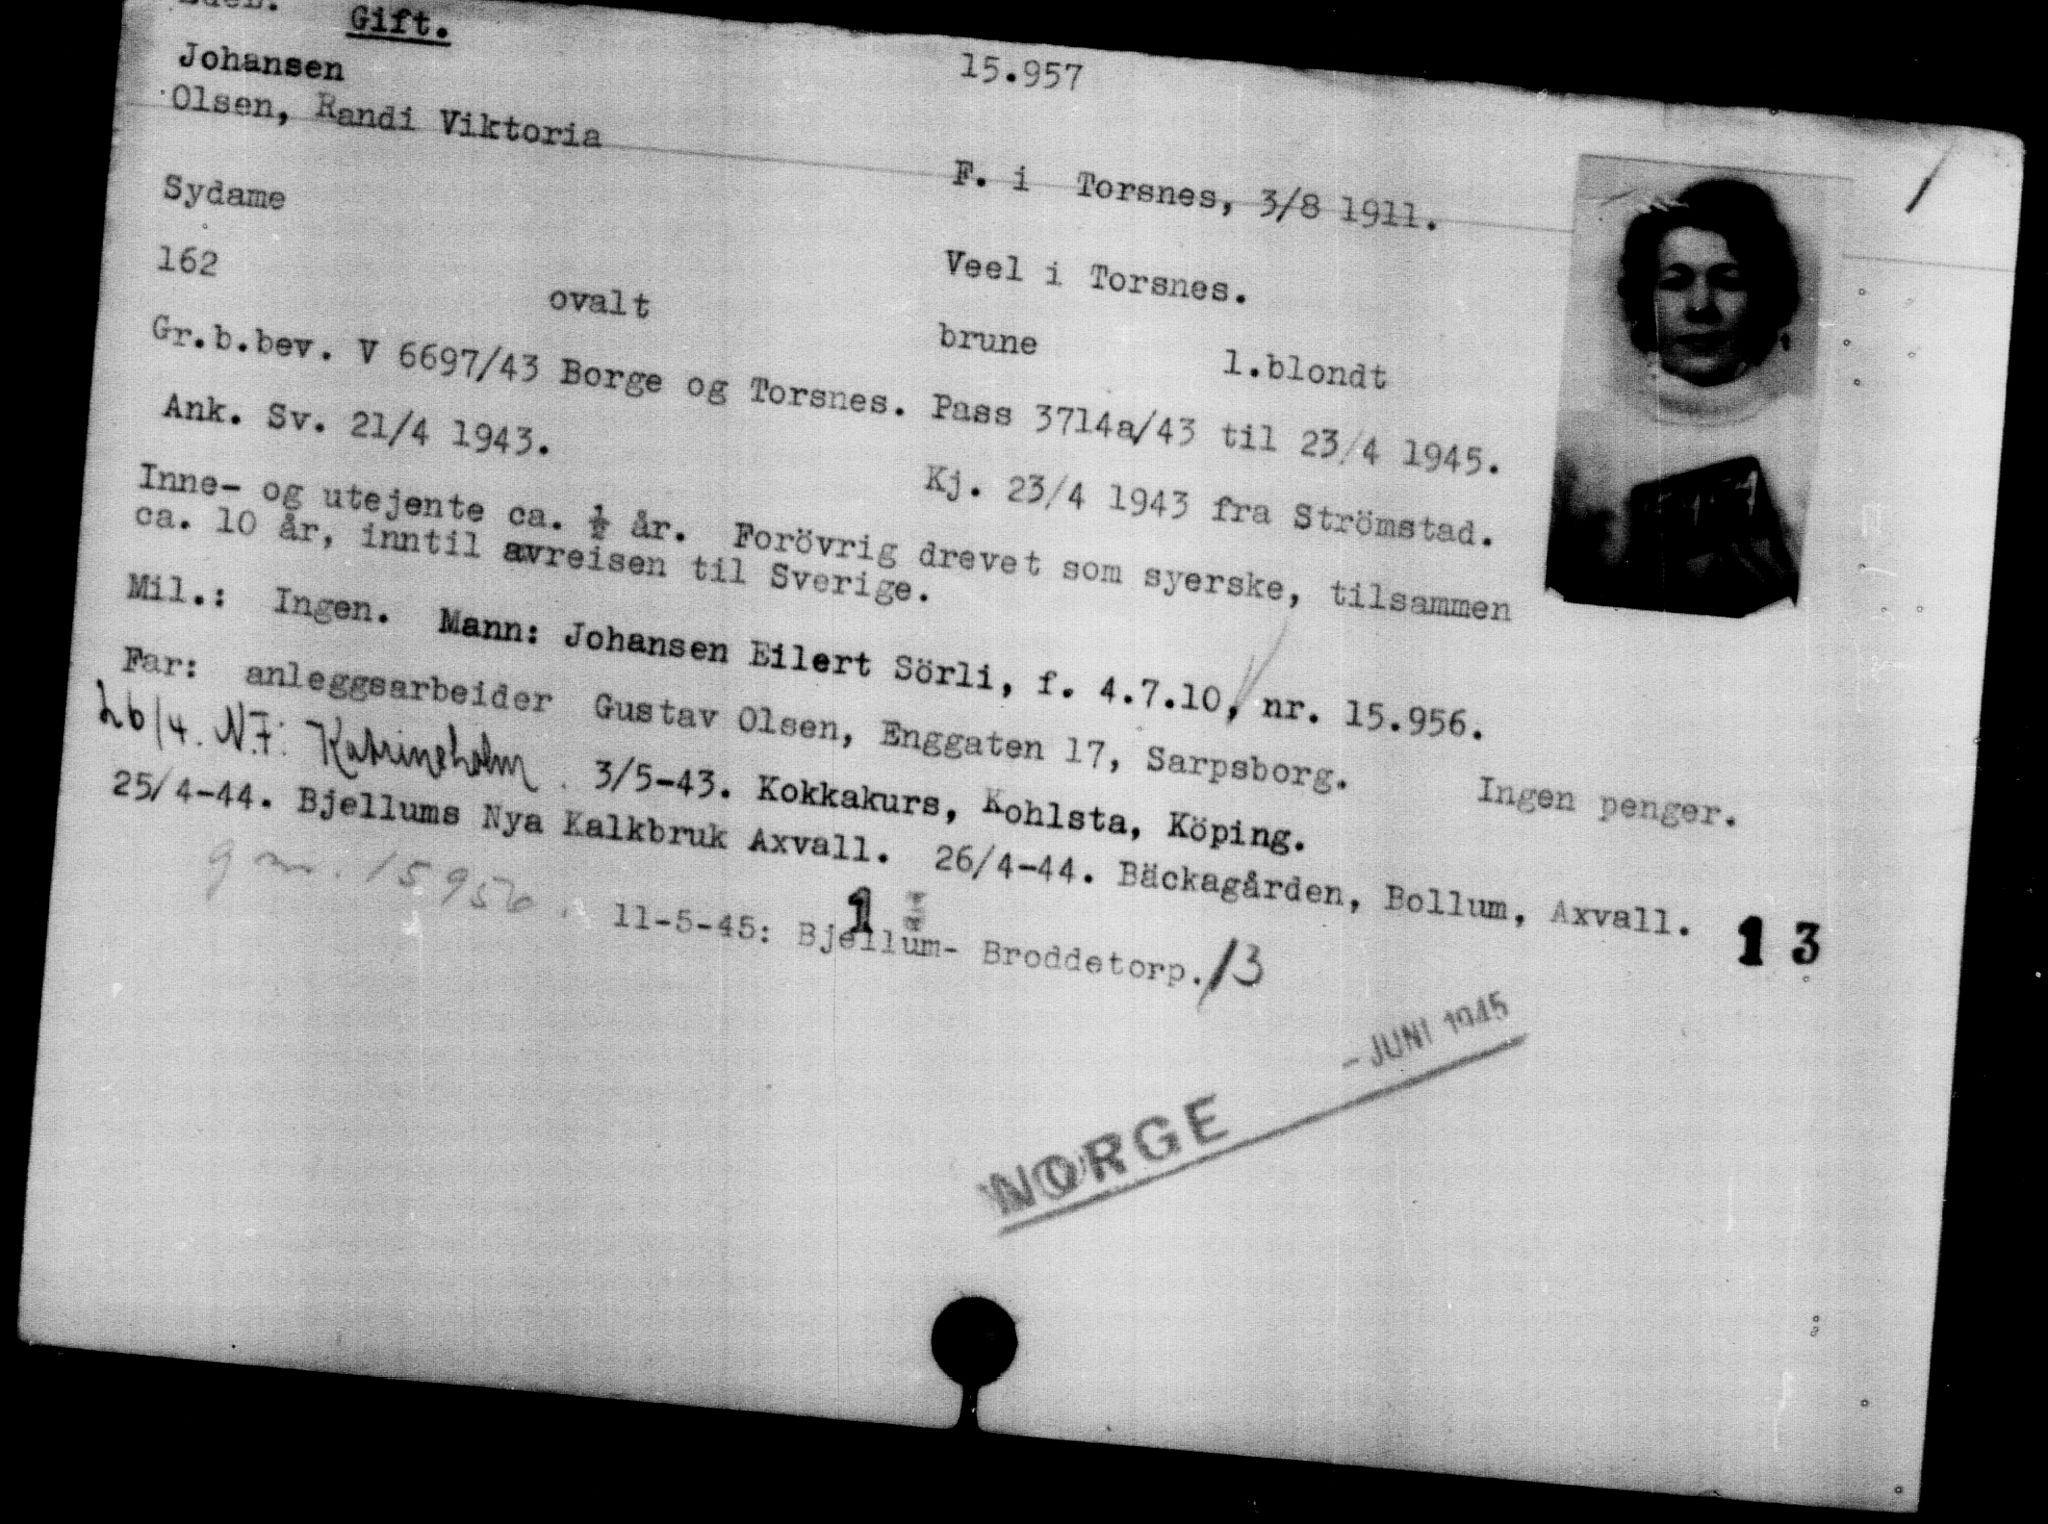 Gift.
15.957
Johansen
Olsen, Randi Viktoria
F. i Torsnes, 3/8 1911.
Sydame
Veel i Torsnes.
162 ovalt brune l.blondt
Gr.b.bev. V 6697/43 Borge og Torsnes. Pass 3714a/43 til 23/4 1945.
Ank. Sv. 21/4 1943. Kj. 23/4 1943 fra Strömstad.
Inne- og utejente ca. ½ år. Forövrig drevet som syerske, tilsammen
ca. 10 år, inntil avreisen til Sverige.
Mil.: Ingen. Mann: Johansen Eilert Sörli, f. 4.7.10, nr. 15.956.
Far: anleggsarbeider Gustav Olsen, Enggaten 17, Sarpsborg. Ingen penger.
26/4. N.F. Katrineholm. 3/5-43. Kokkakurs, Kohlsta, Köping.
25/4-44. Bjellums Nya Kalkbruk Axvall. 26/4-44. Bäckagården, Bollum, Axvall.
g m. 15956.
1 13
11-5-45: Bjellum- Broddetorp. /3
- JUNI 1945
NORGE